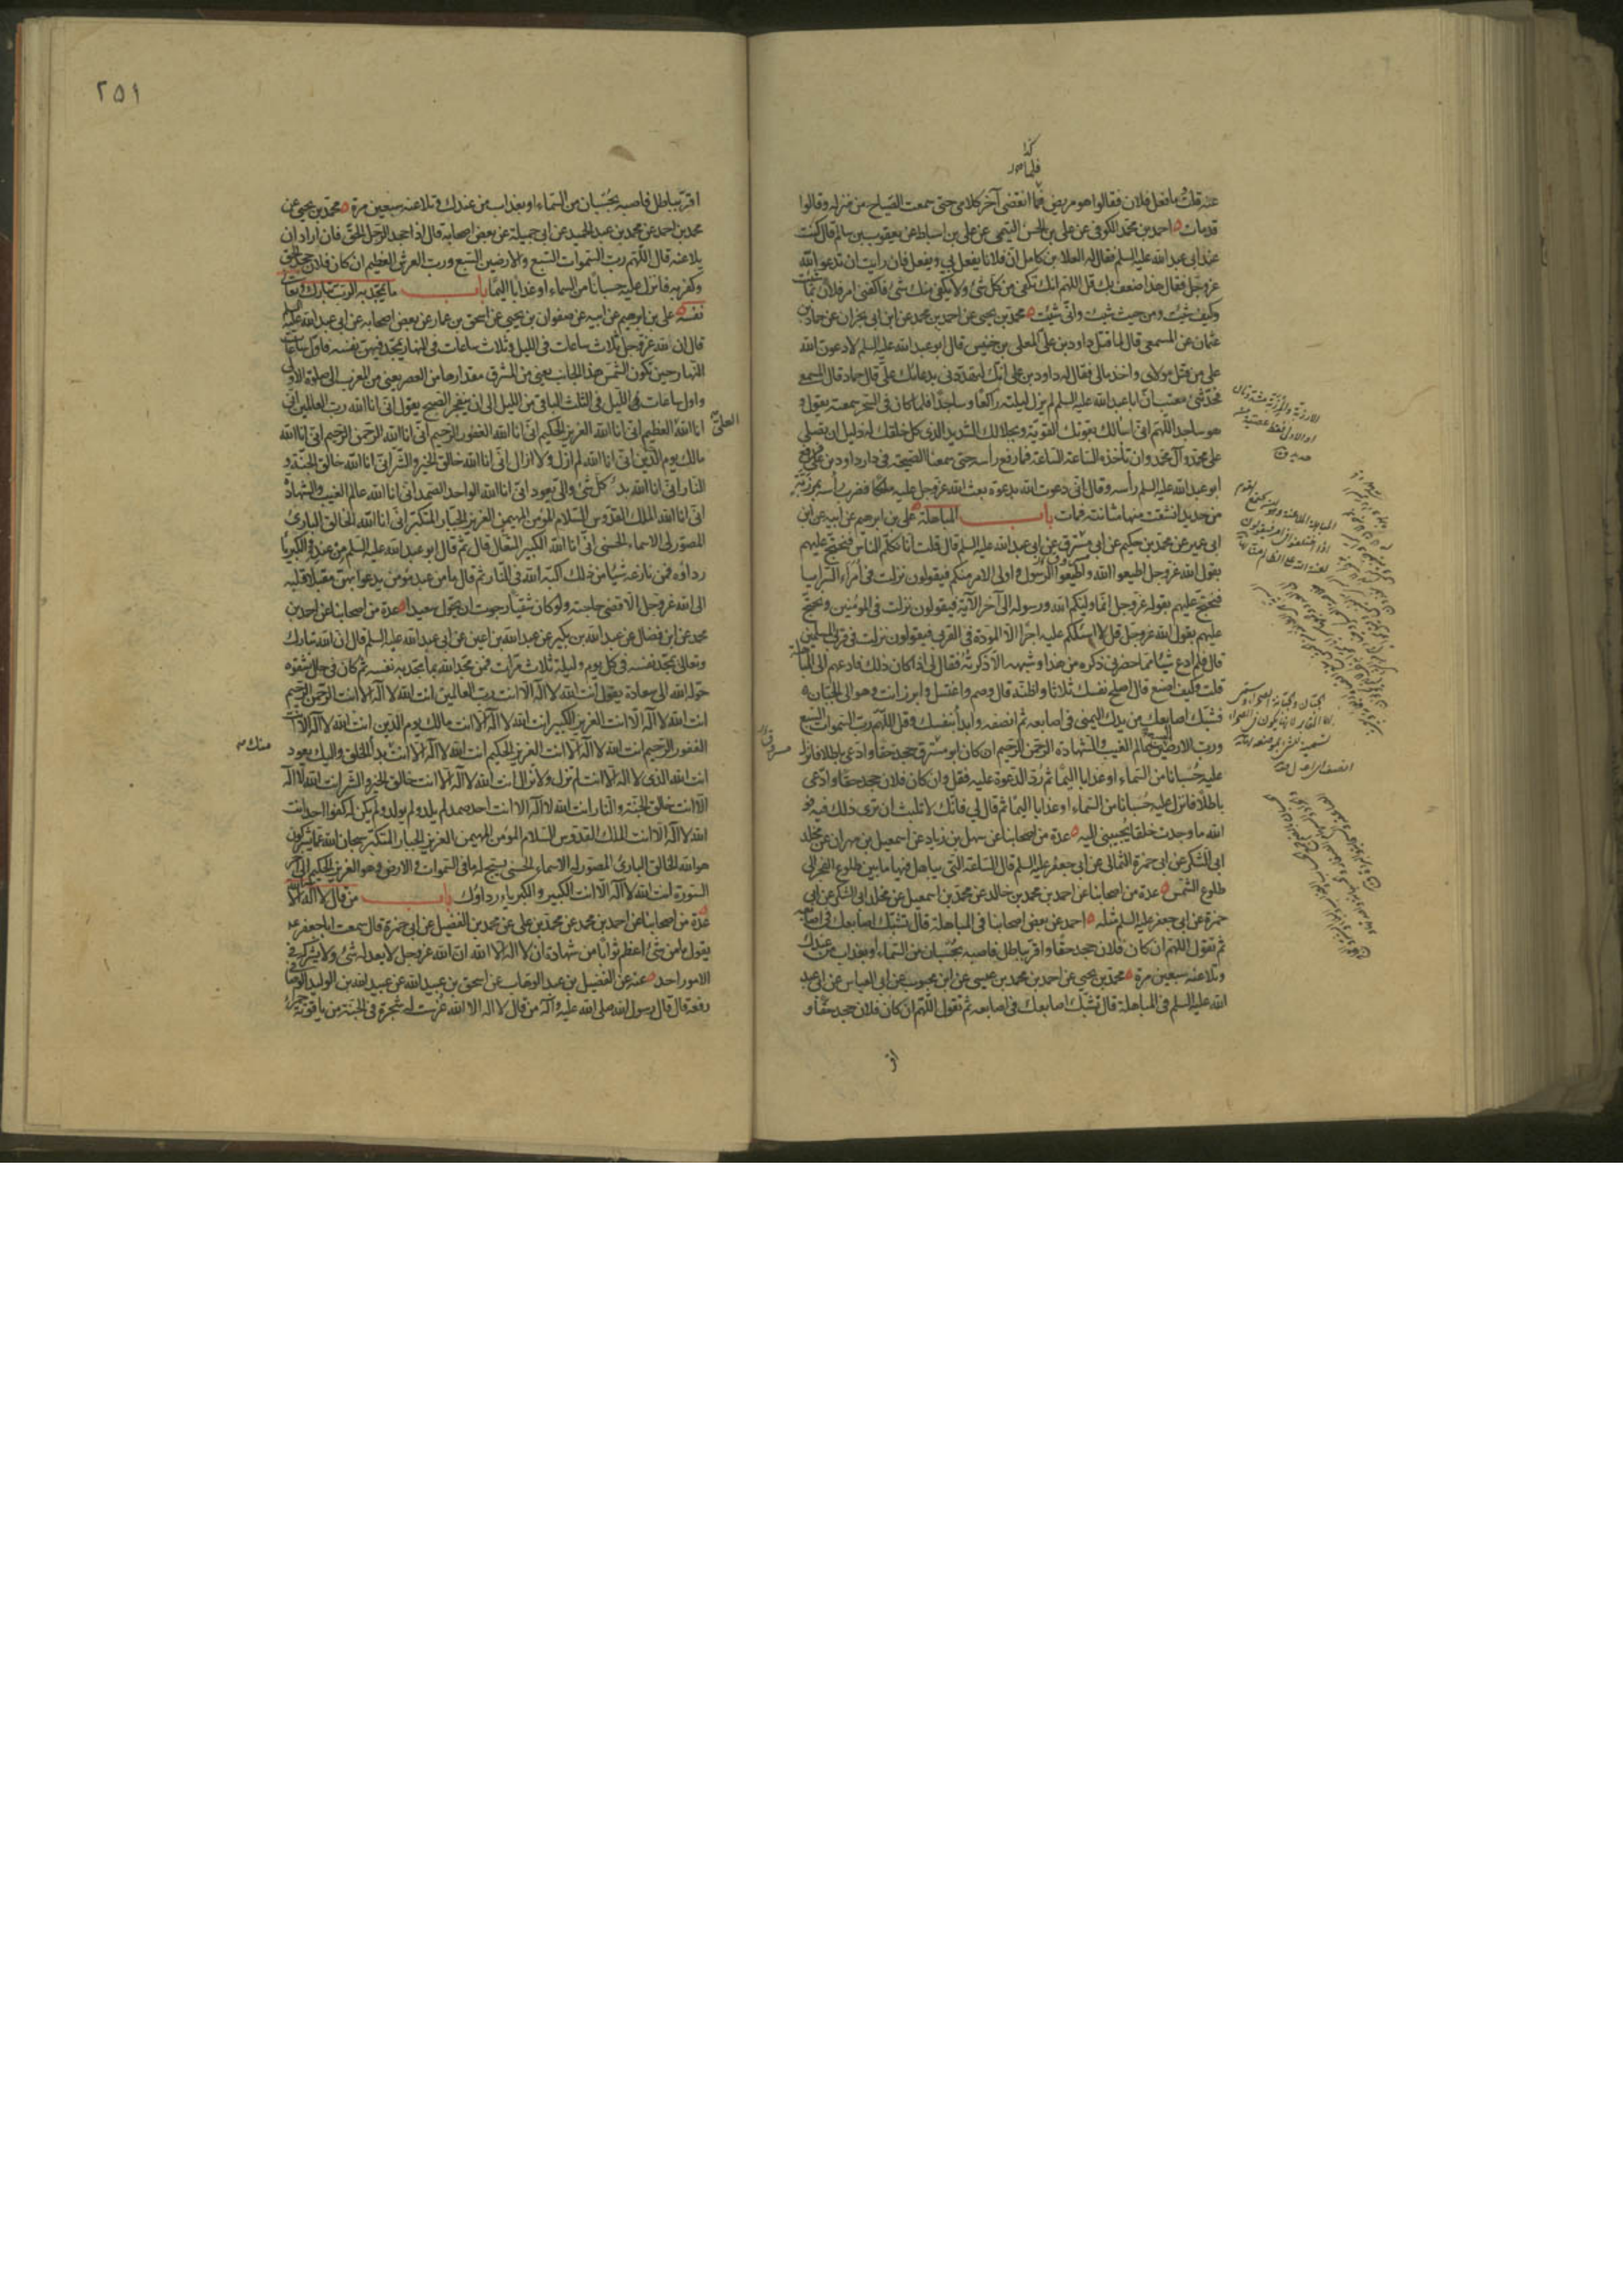 عنه قلت ما فعل فلان فقالوا هو مريض فما انقضى آخر كلامى حتى سمعت الصياح من منزله وقالوا
قد مات احمد بن محمد الكوفى عن على بن الحسن التيمى عن على بن اسباط عن يعقوب بن سالم قال كنت
عند ابى عبد الله عليه السلم فقال له العلا بن كامل ان فلانا يفعل بى ويفعل فان رايت ان تدعو الله
عز وجل فقال هذا ضعف بك قل اللهم انك تكفى من كل شئ ولا يكفى منك شئ فاكفنى امر فلان بما شئت
وكيف شئت ومن حيث شئت وانى شئت محمد بن يحيى عن احمد بن محمد عن ابن ابى نجران عن حماد بن
عثمان عن المسمعى قال لما قتل داود بن على المعلى بن خنيس قال ابو عبد الله عليه السلم لادعون الله
على من قتل مولاى واخذ مالى فقال له داود بن على انك لتهددنى بدعائك على قال حماد قال المسمعى
فحدثنى معتب ان ابا عبد الله عليه السلم لم يزل ليلته راكعا وساجدا فلما كان فى السحر سمعته يقول و
هو ساجد اللهم انى اسألك بقوتك القوية وبجلالك الشديد الذى كل خلقك له ذليل ان تصلى
على محمد وآل محمد وان تأخذه الساعة الساعة فما رفع رأسه حتى سمعنا الصيحة فى دار داود بن على فرفع
ابو عبد الله عليه السلم رأسه وقال انى دعوت الله بدعوة بعث الله عز وجل عليه ملكا فضرب رأسه بمرزبة
من حديد انشقت منها مثانته فمات باب المباهلة على بن ابرهيم عن ابيه عن ابن
ابى عمير عن محمد بن حكيم عن ابى مسترق عن ابى عبد الله عليه السلم قال قلت انا نكلم الناس فنحتج عليهم
بقول الله عز وجل اطيعوا الله واطيعوا الرسول واولى الامر منكم فيقولون نزلت فى امراء السرايا
فنحتج عليهم بقوله عز وجل انما وليكم الله ورسوله الى آخر الآية فيقولون نزلت فى المؤمنين ونحتج
عليهم بقول الله عز وجل قل لا اسئلكم عليه اجرا الا المودة فى القربى فيقولون نزلت فى قربى المسلمين
قال فلم ادع شيئا مما حضرنى ذكره من هذا وشبهه الا ذكرته فقال لى اذا كان ذلك فادعهم الى المباهلة
قلت وكيف اصنع قال اصلح نفسك ثلاثا واظنه قال وصم واغتسل وابرز انت وهو الى الجبان
فشبك اصابعك من يدك اليمنى فى اصابعه ثم انصفه وابدأ بنفسك وقل اللهم رب السموات السبع
ورب الارضين السبع عالم الغيب والشهادة الرحمن الرحيم ان كان ابو مسترق جحد حقا وادعى باطلا فانزل
عليه حسبانا من السماء او عذابا اليما ثم رد الدعوة عليه فقل وان كان فلان جحد حقا وادعى
باطلا فانزل عليه حسبانا من السماء او عذابا اليما ثم قال لى فانك لا تلبث ان ترى ذلك فيه فو
الله ما وجدت خلقا يجيبنى اليه عدة من اصحابنا عن سهل بن زياد عن اسمعيل بن مهران عن مخلد
ابى الشكر عن ابى حمزة الثمالى عن ابى جعفر عليه السلم قال الساعة التى يباهل فيها ما بين طلوع الفجر الى
طلوع الشمس عدة من اصحابنا عن احمد بن محمد بن خالد عن محمد بن اسمعيل عن مخلد ابى الشكر عن ابى
حمزة عن ابى جعفر عليه السلم مثله احمد عن بعض اصحابنا فى المباهلة قال تشبك اصابعك فى اصابعه
ثم تقول اللهم ان كان فلان جحد حقا واقر بباطل فاصبه بحسبان من السماء او بعذاب من عندك
وتلاعنه سبعين مرة محمد بن يحيى عن احمد بن محمد بن عيسى عن ابن محبوب عن ابى العباس عن ابى عبد
الله عليه السلم فى المباهلة قال تشبك اصابعك فى اصابعه ثم تقول اللهم ان كان فلان جحد حقا و
اقر
٢٥١
اقر بباطل فاصبه بحسبان من السماء او بعذاب من عندك وتلاعنه سبعين مرة محمد بن يحيى عن
محمد بن احمد عن محمد بن عبد الحميد عن ابى جميلة عن بعض اصحابه قال اذا جحد الرجل الحق فان اراد ان
يلاعنه قال اللهم رب السموات السبع والارضين السبع ورب العرش العظيم ان كان فلان جحد الحق
وكفر به فانزل عليه حسبانا من السماء او عذابا اليما باب ما يمجد به الرب تبارك وتعالى
نفسه على بن ابرهيم عن ابيه عن صفوان بن يحيى عن اسحق بن عمار عن بعض اصحابه عن ابى عبد الله عليه السلم
قال ان لله عز وجل ثلاث ساعات فى الليل وثلاث ساعات فى النهار يمجد فيهن نفسه فاول ساعات
النهار حين تكون الشمس هذا الجانب يعنى من المشرق مقدارها من العصر يعنى من المغرب الى صلوة الاولى
واول ساعات الليل فى الثلث الباقى من الليل الى ان ينفجر الصبح يقول انى انا الله رب العالمين انى
انا الله العلى العظيم انى انا الله العزيز الحكيم انى انا الله الغفور الرحيم انى انا الله الرحمن الرحيم انى انا الله
مالك يوم الدين انى انا الله لم ازل ولا ازال انى انا الله خالق الخير والشر انى انا الله خالق الجنة و
النار انى انا الله بدئ كل شئ والى يعود انى انا الله الواحد الصمد انى انا الله عالم الغيب والشهادة
انى انا الله الملك القدوس السلام المؤمن المهيمن العزيز الجبار المتكبر انى انا الله الخالق البارئ
المصور لى الاسماء الحسنى انى انا الله الكبير المتعال قال ثم قال ابو عبد الله عليه السلم من عنده والكبرياء
رداؤه فمن نازعه شيئا من ذلك اكبه الله فى النار ثم قال ما من عبد مؤمن يدعو بهن مقبلا قلبه
الى الله عز وجل الا قضى حاجته ولو كان شقيا رجوت ان يحول سعيدا عدة من اصحابنا عن احمد بن
محمد عن ابن فضال عن عبد الله بن بكير عن عبد الله بن اعين عن ابى عبد الله عليه السلم قال ان الله تبارك
وتعالى يمجد نفسه فى كل يوم وليلة ثلاث مرات فمن مجد الله بما مجد به نفسه ثم كان فى حال شقوة
حوله الله الى سعادة يقول انت الله لا اله الا انت رب العالمين انت الله لا اله الا انت الرحمن الرحيم
انت الله لا اله الا انت العزيز الكبير انت الله لا اله الا انت مالك يوم الدين انت الله لا اله الا انت
الغفور الرحيم انت الله لا اله الا انت العزيز الحكيم انت الله لا اله الا انت بدأ الخلق واليك يعود
انت الله الذى لا اله الا انت لم تزل ولا تزال انت الله لا اله الا انت خالق الخير والشر انت الله لا اله
الا انت خالق الجنة والنار انت الله لا اله الا انت احد صمد لم يلد ولم يولد ولم يكن له كفوا احد انت
الله لا اله الا انت الملك القدوس السلام المؤمن المهيمن العزيز الجبار المتكبر سبحان الله عما يشركون
هو الله الخالق البارئ المصور له الاسماء الحسنى يسبح له ما فى السموات والارض وهو العزيز الحكيم الى آخر
السورة انت الله لا اله الا انت الكبير والكبرياء رداؤك باب من قال لا اله الا الله
عدة من اصحابنا عن احمد بن محمد عن محمد بن على عن محمد بن الفضيل عن ابى حمزة قال سمعت ابا جعفر
يقول ما من شئ اعظم ثوابا من شهادة ان لا اله الا الله ان الله عز وجل لا يعدله شئ ولا يشركه فى
الامور احد عنه عن الفضيل بن عبد الوهاب عن اسحق بن عبيد الله عن عبيد الله بن الوليد الوصافى
رفعه قال قال رسول الله صلى الله عليه وآله من قال لا اله الا الله غرست له شجرة فى الجنة من ياقوتة حمراء